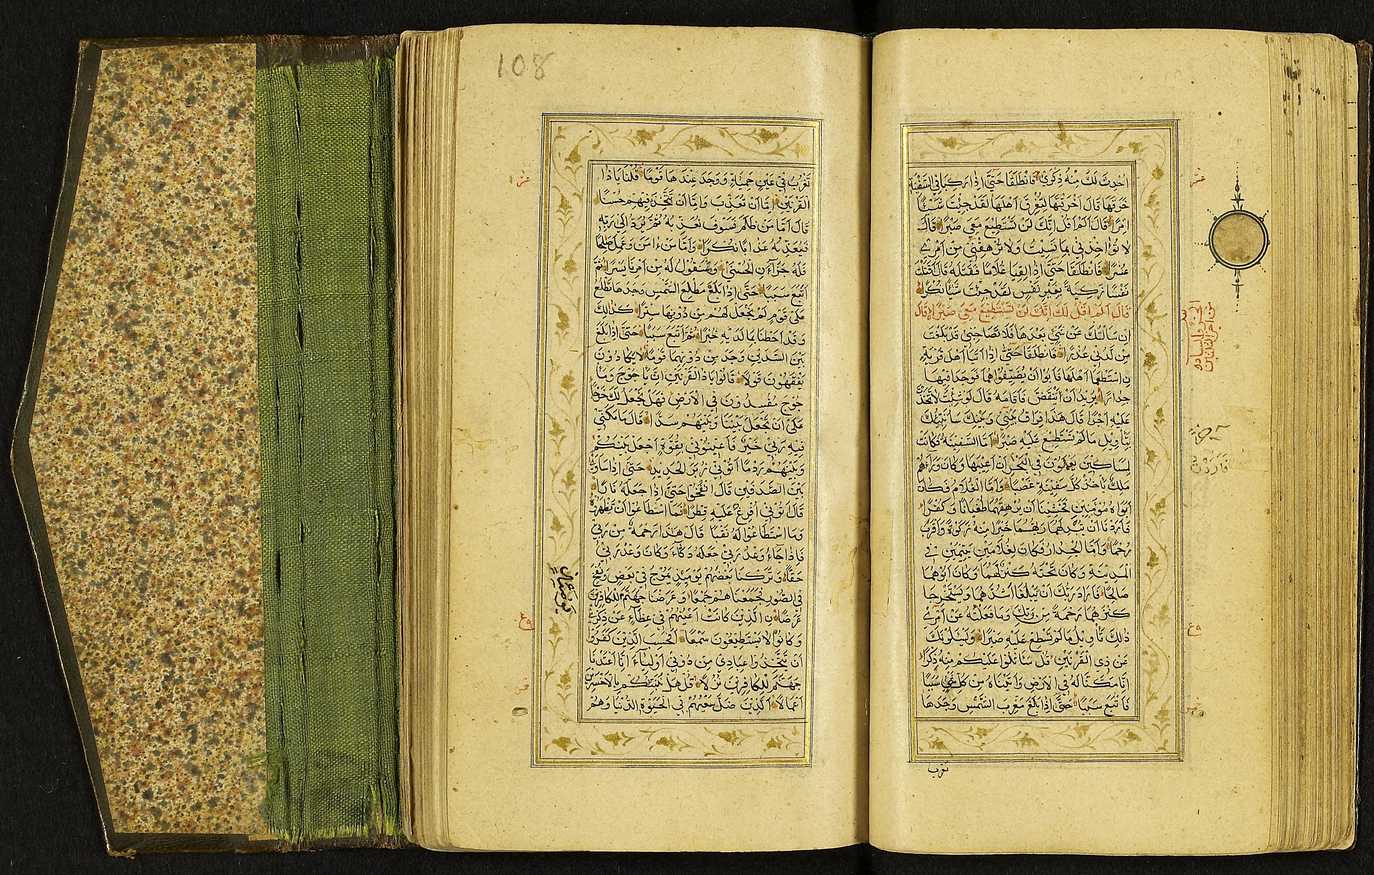 احدث لك منه ذكرا فانطلقا حتى اذا ركبا في السفينة
خرقها قال اخرقتها لتغرق اهلها لقد جئت شيئا
امرا قال الم اقل انك لن تستطيع معي صبرا قال
لا تؤاخذني بما نسيت ولا ترهقني من امري
عسرا فانطلقا حتى اذا لقيا غلاما فقتله قال اقتلت
نفسا زكية بغير نفس لقد جئت شيئا نكرا
قال الم اقل لك انك لن تستطيع معي صبرا قال
ان سالتك عن شيء بعدها فلا تصاحبني قد بلغت
من لدني عذرا فانطلقا حتى اذا اتيا اهل قرية
استطعما اهلها فابوا ان يضيفوهما فوجدا فيها
جدارا يريد ان ينقض فاقامه قال لو شئت لاتخذت
عليه اجرا قال هذا فراق بيني وبينك سانبئك
بتاويل ما لم تستطع عليه صبرا اما السفينة فكانت
لمساكين يعملون في البحر فاردت ان اعيبها وكان وراءهم
ملك ياخذ كل سفينة غصبا واما الغلام فكان
ابواه مؤمنين فخشينا ان يرهقهما طغيانا وكفرا
فاردنا ان يبدلهما ربهما خيرا منه زكوة واقرب
رحما واما الجدار فكان لغلامين يتيمين في
المدينة وكان تحته كنز لهما وكان ابوهما
صالحا فاراد ربك ان يبلغا اشدهما ويستخرجا
كنزهما رحمة من ربك وما فعلته عن امري
ذلك تاويل ما لم تسطع عليه صبرا ويسئلونك
عن ذي القرنين قل ساتلوا عليكم منه ذكرا
انا مكنا له في الارض واتيناه من كل شيء سببا
فاتبع سببا حتى اذا بلغ مغرب الشمس وجدها
تغرب
108
تغرب في عين حمئة ووجد عندها قوما قلنا ياذا
القرنين اما ان تعذب واما ان تتخذ فيهم حسنا
قال اما من ظلم فسوف نعذبه ثم يرد الى ربه
فيعذبه عذابا نكرا واما من امن وعمل صالحا
فله جزاء الحسنى وسنقول له من امرنا يسرا ثم
اتبع سببا حتى اذا بلغ مطلع الشمس وجدها تطلع
على قوم لم نجعل لهم من دونها سترا كذلك
وقد احطنا بما لديه خبرا ثم اتبع سببا حتى اذا بلغ
بين السدين وجد من دونهما قوما لا يكادون
يفقهون قولا قالوا ياذا القرنين ان ياجوج وما
جوج مفسدون في الارض فهل نجعل لك خرجا
على ان تجعل بيننا وبينهم سدا قال ما مكني
فيه ربي خير فاعينوني بقوة اجعل بينكم
وبينهم ردما اتوني زبر الحديد حتى اذا ساوى
بين الصدفين قال انفخوا حتى اذا جعله نارا
قال اتوني افرغ عليه قطرا فما اسطاعوا ان يظهروه
وما استطاعوا له نقبا قال هذا رحمة من ربي
فاذا جاء وعد ربي جعله دكاء وكان وعد ربي
حقا وتركنا بعضهم يومئذ يموج في بعض ونفخ
في الصور فجمعناهم جمعا وعرضنا جهنم للكافرين
عرضا الذين كانت اعينهم في غطاء عن ذكري
وكانوا لا يستطيعون سمعا افحسب الذين كفروا
ان يتخذوا عبادي من دوني اولياء انا اعتدنا
جهنم للكافرين نزلا قل هل ننبئكم بالاخسرين
اعمالا الذين ضل سعيهم في الحيوة الدنيا وهم